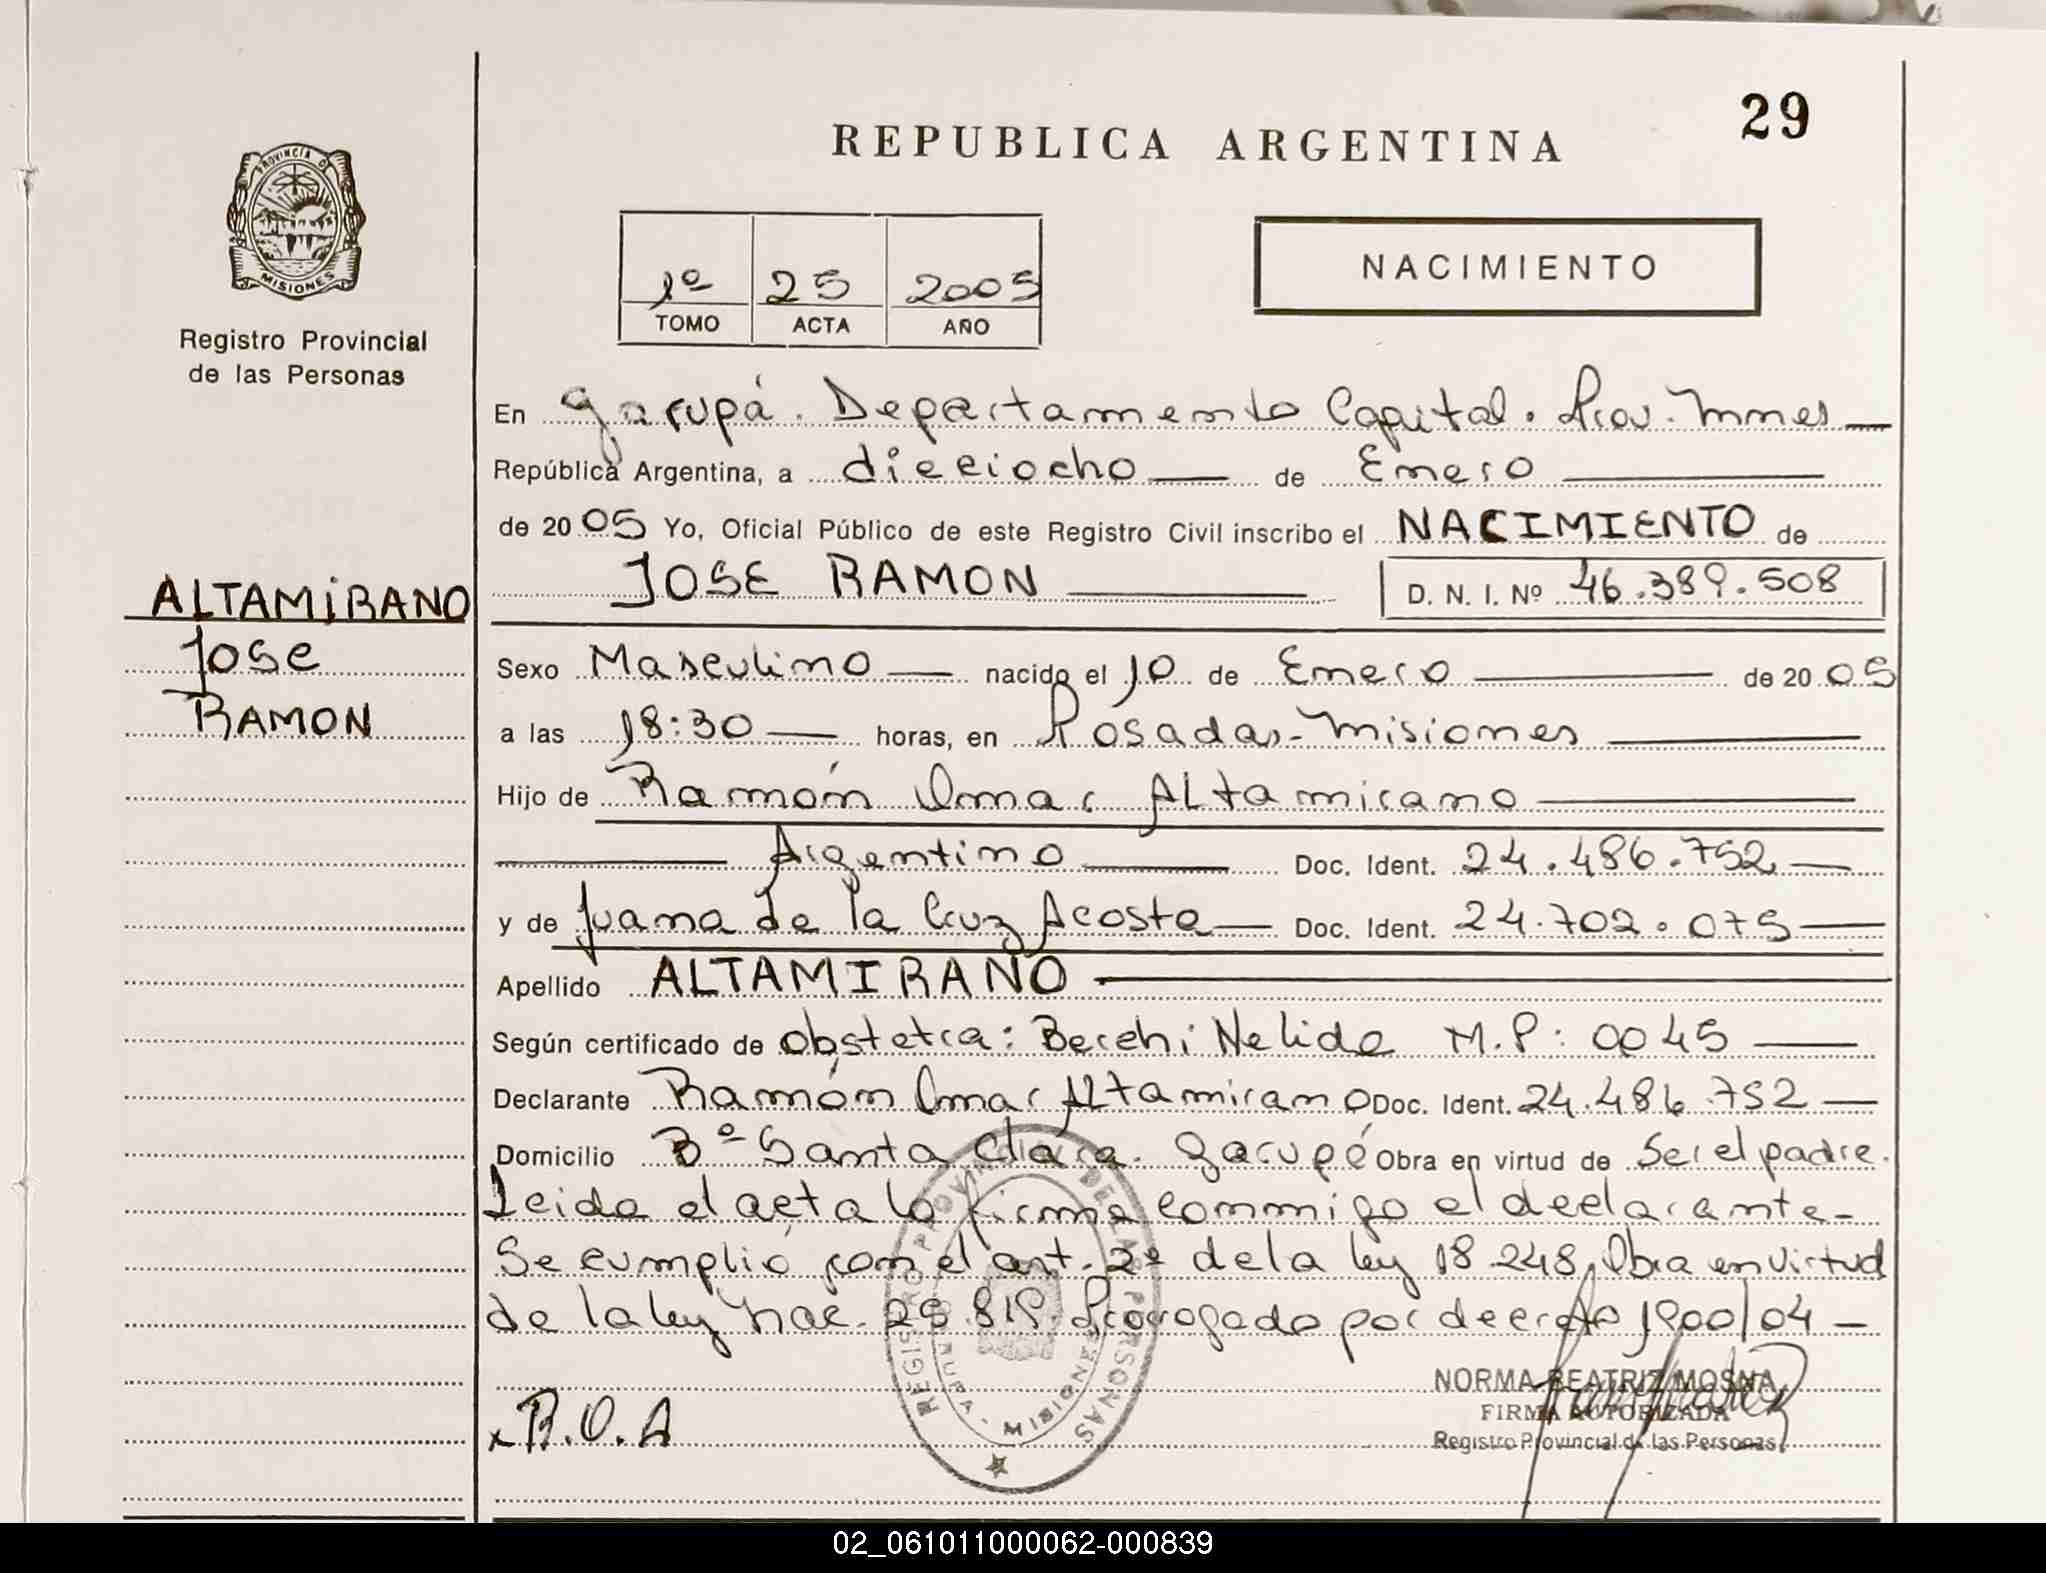 29
REPUBLICA ARGENTINA
PROVINCIA DE
MISIONES
Registro Provincial
de las Personas
1º 25 2005
TOMO ACTA AÑO
NACIMIENTO
En Garupá. Departamento Capital. Prov. Mnes
República Argentina, a dieciocho de Enero
de 2005 Yo, Oficial Público de este Registro Civil inscribo el NACIMIENTO de
JOSE RAMON D. N. I. Nº 46.389.508
ALTAMIRANO
Jose
RAMON
Sexo Masculino nacido el 10 de Enero de 2005
a las 18:30 horas, en Posadas-Misiones
Hijo de Ramón Omar Altamirano
Argentino Doc. Ident. 24.486.752
y de Juana de la Cruz Acosta Doc. Ident. 24.702.075
Apellido ALTAMIRANO
Según certificado de obstetra: Becchi Nelida M.P: 0045
Declarante Ramón Omar Altamirano Doc. Ident. 24.486.752
Domicilio Bº Santa Clara. Garupá Obra en virtud de Ser el padre.
Leida el acta la firma conmigo el declarante-
Se cumplió con el art. 2º de la ley 18.248. Obra en virtud
de la ley nac. 25.819. Prorrogado por decreto 1900/04
REGISTRO PROVINCIAL DE LAS PERSONAS
GARUPA - MISIONES
x R.O.A
NORMA BEATRIZ MOSNA
FIRMA AUTORIZADA
Registro Provincial de las Personas
02_061011000062-000839